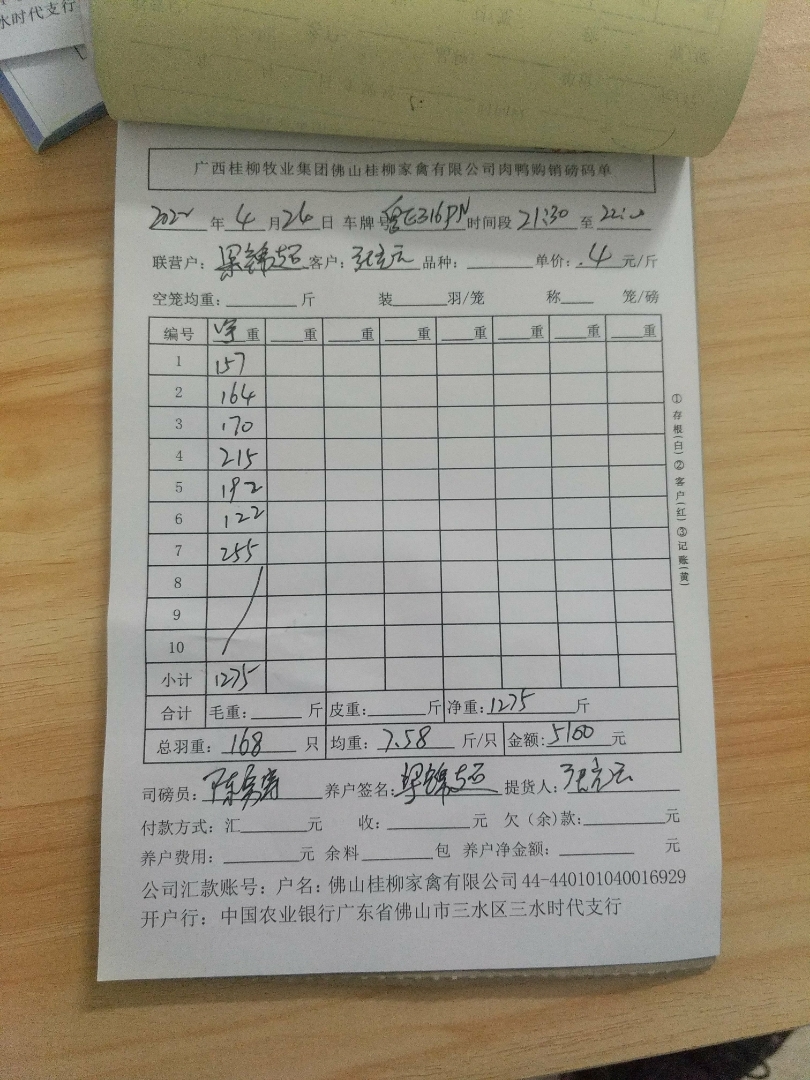 水时代支行
广西桂柳牧业集团佛山桂柳家禽有限公司肉鸭购销磅码单
年 4 月 26 日 车牌号 316PN 时间段 21:30 至
联营户：梁锦超 客户： 品种： 单价：.4 元/斤
空笼均重： 斤 装 羽/笼 称 笼/磅
编号 重 重 重 重 重 重 重 重
1 157
2 164
3 170
4 215
5 192
6 122
7 255
8
9
10
小计 1275
合计 毛重： 斤 皮重： 斤 净重：1275 斤
总羽重：168 只 均重：7.58 斤/只 金额：5100 元
司磅员：陈 养户签名：梁锦超 提货人：
付款方式：汇 元 收： 元 欠（余）款： 元
养户费用： 元 余料 包 养户净金额： 元
公司汇款账号：户名：佛山桂柳家禽有限公司 44-440101040016929
开户行：中国农业银行广东省佛山市三水区三水时代支行
①存根(白)②客户(红)③记账(黄)